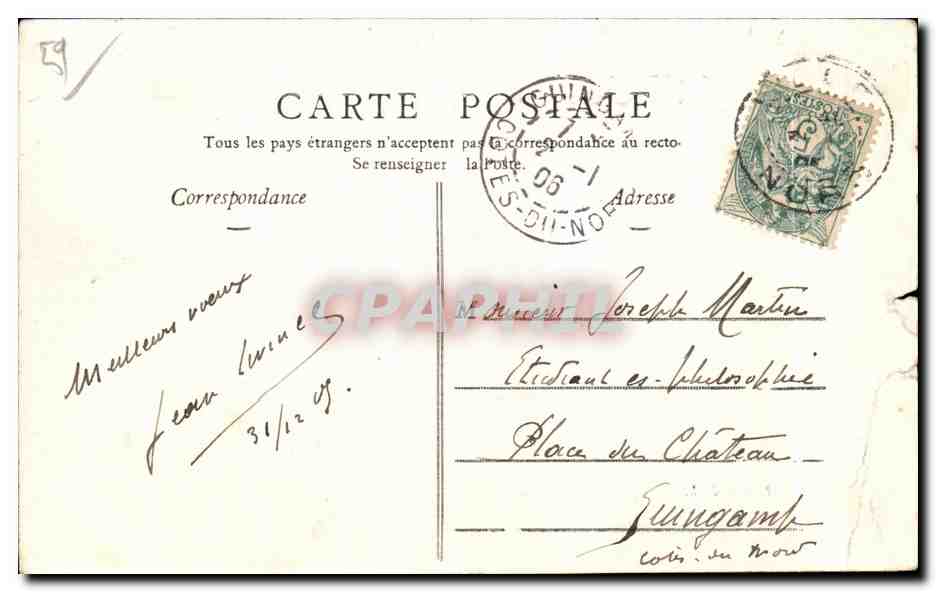 59
CARTE POSTALE
Tous les pays étrangers n'acceptent pas la correspondance au recto.
Se renseigner la Poste.
Correspondance
Adresse
GUINGAMP
7
2 -1
06
COTES-DU-NORD
POSTES
5
Meilleurs vœux
Jean
31/12 05.
CPAPHIL
Monsieur Joseph Martin
Etudiant es-philosophie
Place du Château
Guingamp
Côtes-du-Nord